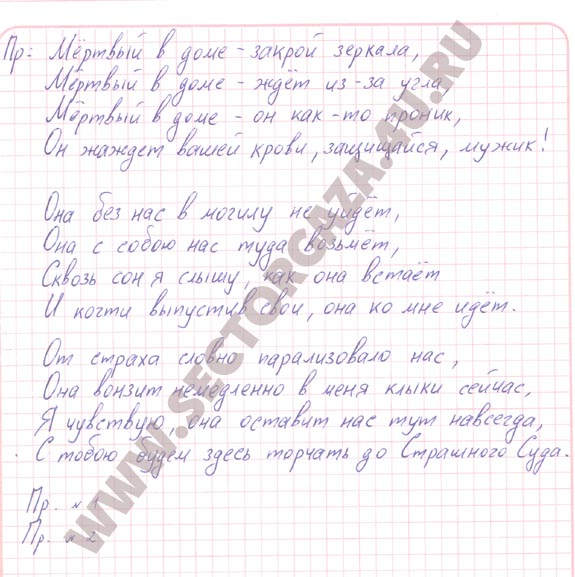 Пр: Мёртвый в доме - закрой зеркала,
Мёртвый в доме - ждёт из-за угла,
Мёртвый в доме - он как-то проник,
Он жаждет вашей крови, защищайся, мужик!
Она без нас в могилу не уйдёт,
Она с собою нас туда возьмёт,
Сквозь сон я слышу, как она встаёт
И когти выпустив свои, она ко мне идёт.
От страха словно парализовало нас,
Она вонзит немедленно в меня клыки сейчас,
Я чувствую, она оставит нас тут навсегда,
С тобою будем здесь торчать до Страшного Суда.
Пр. № 1
Пр. № 2
WWW.SECTORGAZA.4U.RU